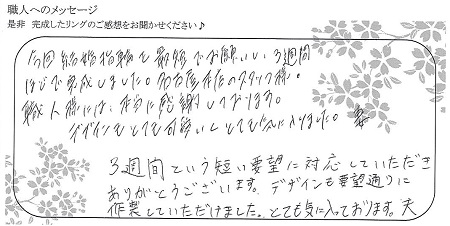 職人へのメッセージ
是非 完成したリングのご感想をお聞かせください♪
今回 結婚指輪を最短でお願いし、3週間
ほどで完成しました。名古屋本店のスタッフ様。
職人様には、本当に感謝しております。
デザインもとても可愛いしとても気に入りました。 妻
3週間という短い要望に対応していただき
ありがとうございます。デザインも要望通りに
作製していただけました。とても気に入っております。夫